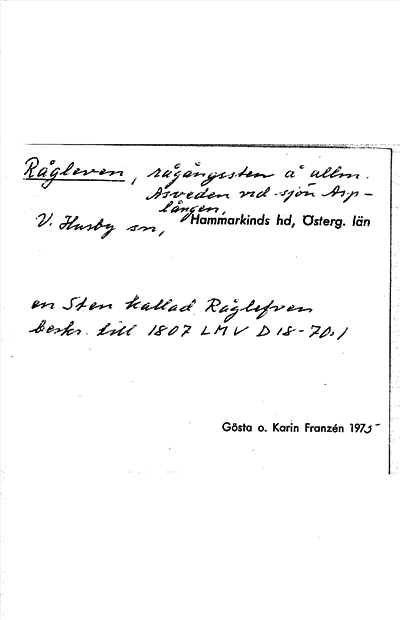 Rågleven, rågångssten å allm.
Åsveden vid sjön Asp-
lången,
V. Husby sn, Hammarkinds hd, Österg. län
en Sten kallad Råglefven
beskr. till 1807 LMV D 18-70:1
Gösta o. Karin Franzén 1975